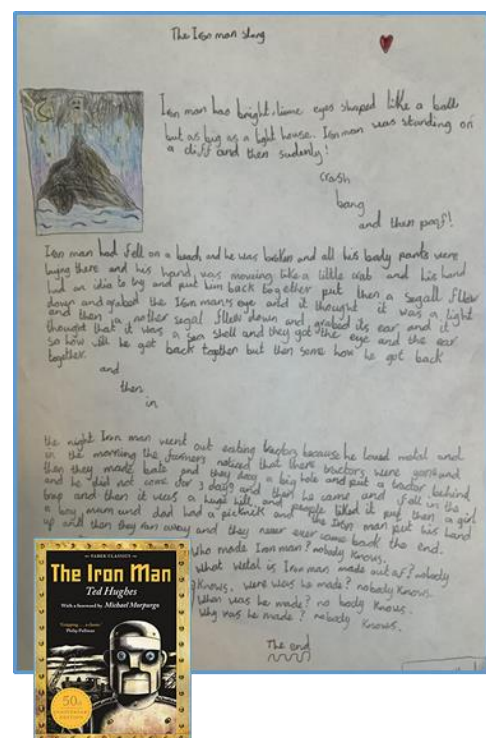 The Iron man story
Iron man has bright, lime eyes shaped like a ball
but as big as a light house. Iron man was standing on
a cliff and then sudenly!
crash
bang
and then poof!
Iron man had fell on a beach and he was broken and all his body parts were
laying there and his hand was moving like a little crab and his hand
had an idia to try and put him back together put then a segall fllew
down and grabed the Iron man's eye and it thought it was a light
and then a nother segal fllew down and grabed its ear and it
thought that it was a sea shell and they got the eye and the ear
so how will he get back together but then some how he got back
together.
and
then
in
the night Iron man went out eating tractors because he loved metal and
in the morning the farmers noticed that there tractors were gone and
then they made bate and they dug a big hole and put a tractor behind
and he did not come for 3 days and then he came and fell in the
trap and then it was a huge hill and people liked it put then a girl
a boy, mum and dad had a picknik and the Iron man put his hand
up and then they ran away and they never ever come back the end.
Who made Iron man? nobody knows.
What metal is Iron man made out of? nobody
knows. were was he made? nobody knows.
When was he made? no body knows.
Why was he made? nobody knows.
The end
FABER CLASSICS
The Iron Man
Ted Hughes
With a foreword by Michael Morpurgo
Philip Pullman
50th
ANNIVERSARY
EDITION